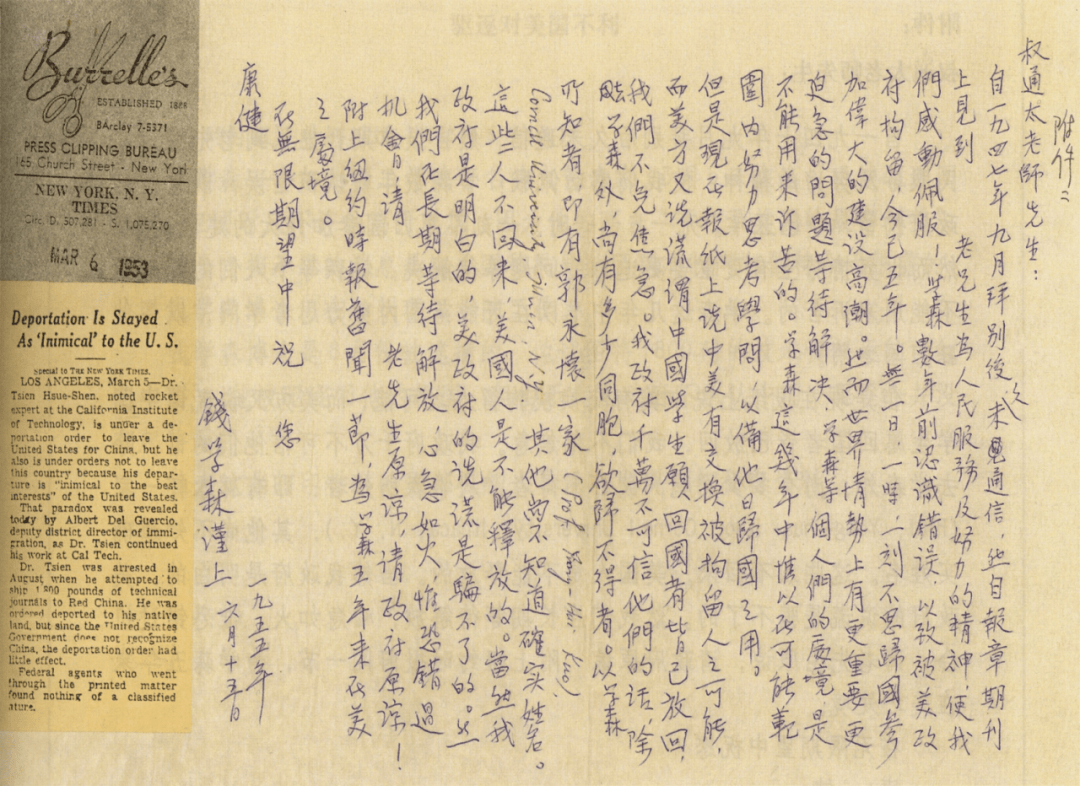 附件二
叔通太老師先生：
自一九四七年九月拜別後久未通信，然自報章期刊
上見到 老先生為人民服務及努力的精神，使我
們感動佩服！学森數年前認識錯误，以致被美政
府拘留，今已五年。無一日一時一刻不思歸國參
加偉大的建设高潮。然而世界情勢上有更重要更
迫急的問題等待解决，学森等個人們的處境，是
不能用来诉苦的。学森這幾年中惟以在可能範
圍内努力思考學問，以備他日歸國之用。
但是現在報紙上说中美有交換被拘留人之可能，
而美方又说謊謂中國學生願回國者皆已放回，
我們不免焦急。我政府千萬不可信他們的话，除
学森外，尚有多少同胞，欲歸不得者。以学森
所知者即有郭永懷一家（Prof. Yung-Huai Kuo）
Cornell University, Ithaca, N.Y. 其他尚不知道確实姓名。
這些人不回来，美國人是不能釋放的。當然我
政府是明白的，美政府的说謊是騙不了的。然
我們在長期等待解放，心急如火，惟恐錯過
机會，请 老先生原谅，请政府原谅！
附上紐約時報舊聞一節，為学森五年来在美
之處境。
在無限期望中祝 您
康健
錢学森謹上
一九五五年
六月十五日
Burrelle's
ESTABLISHED 1888
BArclay 7-5371
PRESS CLIPPING BUREAU
165 Church Street - New York
NEW YORK, N. Y.
TIMES
Circ. (D. 507,281 - S. 1,075,270
MAR 6 1953
Deportation Is Stayed
As 'Inimical' to the U. S.
Special to THE NEW YORK TIMES.
LOS ANGELES, March 5—Dr.
Tsien Hsue-Shen, noted rocket
expert at the California Institute
of Technology, is under a de-
portation order to leave the
United States for China, but he
also is under orders not to leave
this country because his depar-
ture is "inimical to the best
interests" of the United States.
That paradox was revealed
today by Albert Del Guercio,
deputy district director of immi-
gration, as Dr. Tsien continued
his work at Cal Tech.
Dr. Tsien was arrested in
August when he attempted to
ship 1,800 pounds of technical
journals to Red China. He was
ordered deported to his native
land, but since the United States
Government does not recognize
China, the deportation order had
little effect.
Federal agents who went
through the printed matter
found nothing of a classified
nature.